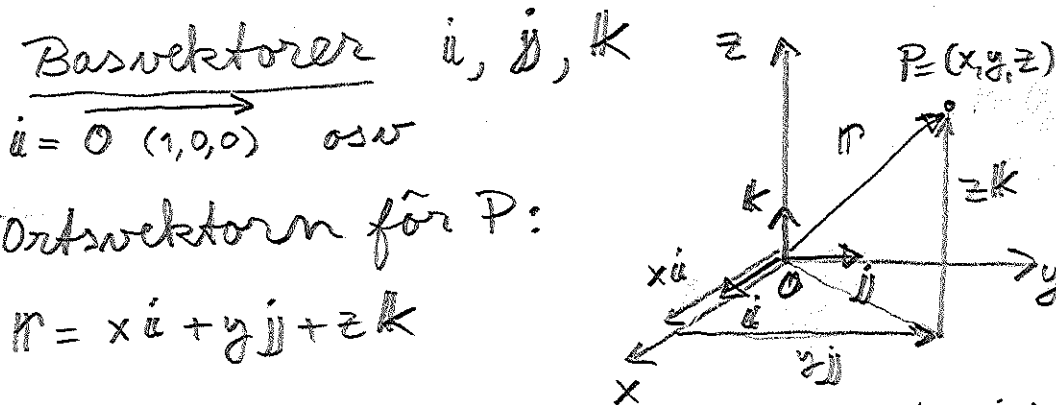 Basvektorer i, j, k
i = O (1,0,0) osv
Ortsvektorn för P:
r = xi + yj + zk
z
P=(x,y,z)
r
k
zk
xi
i
O
j
y
yj
x